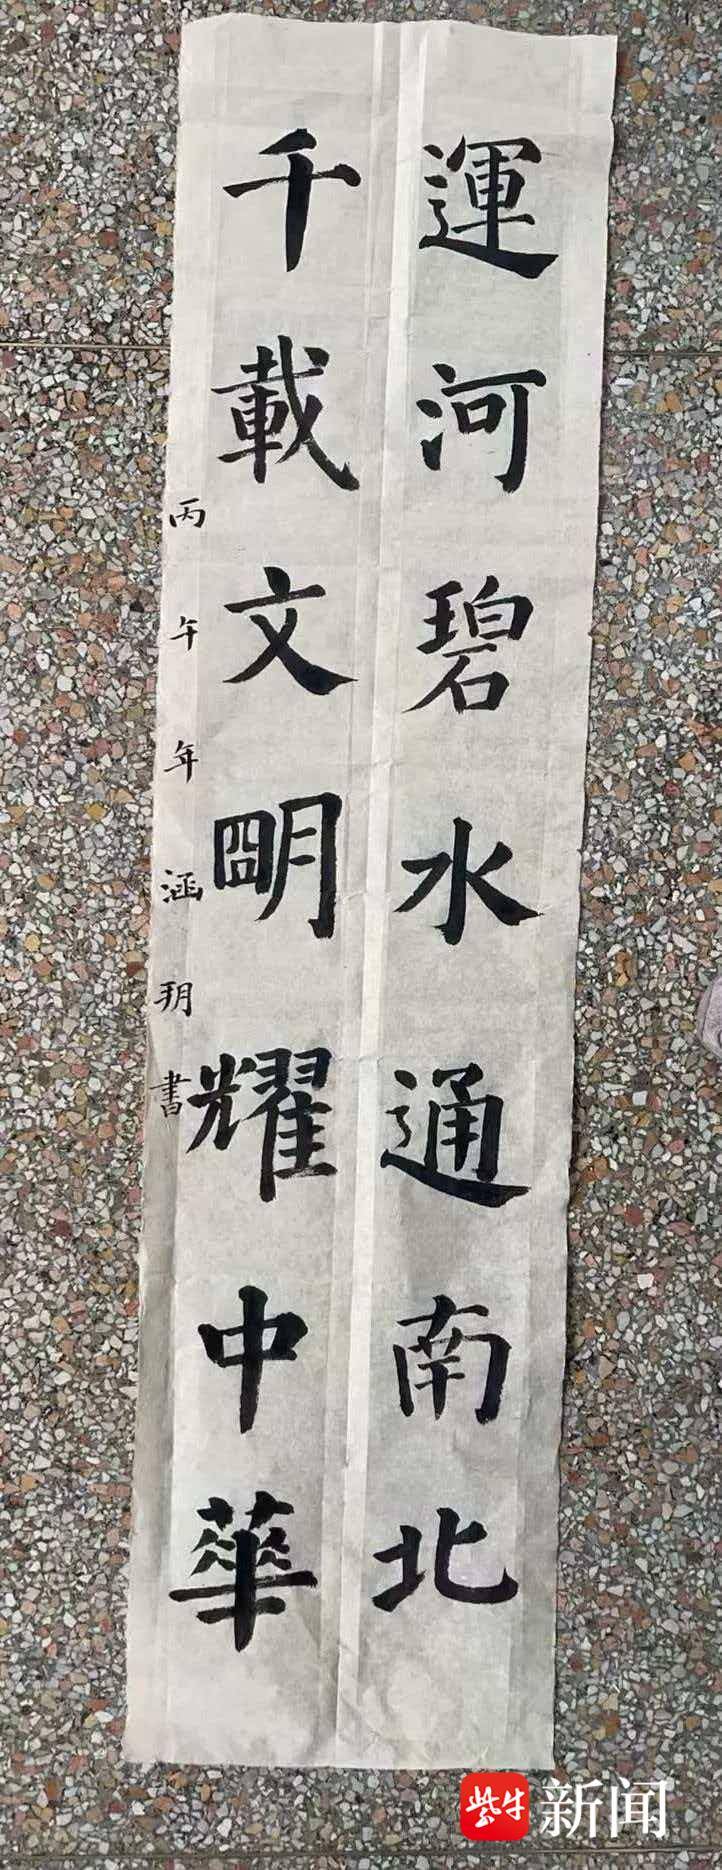 運河碧水通南北
千載文朙耀中華
丙午年涵玥書
紫牛新闻